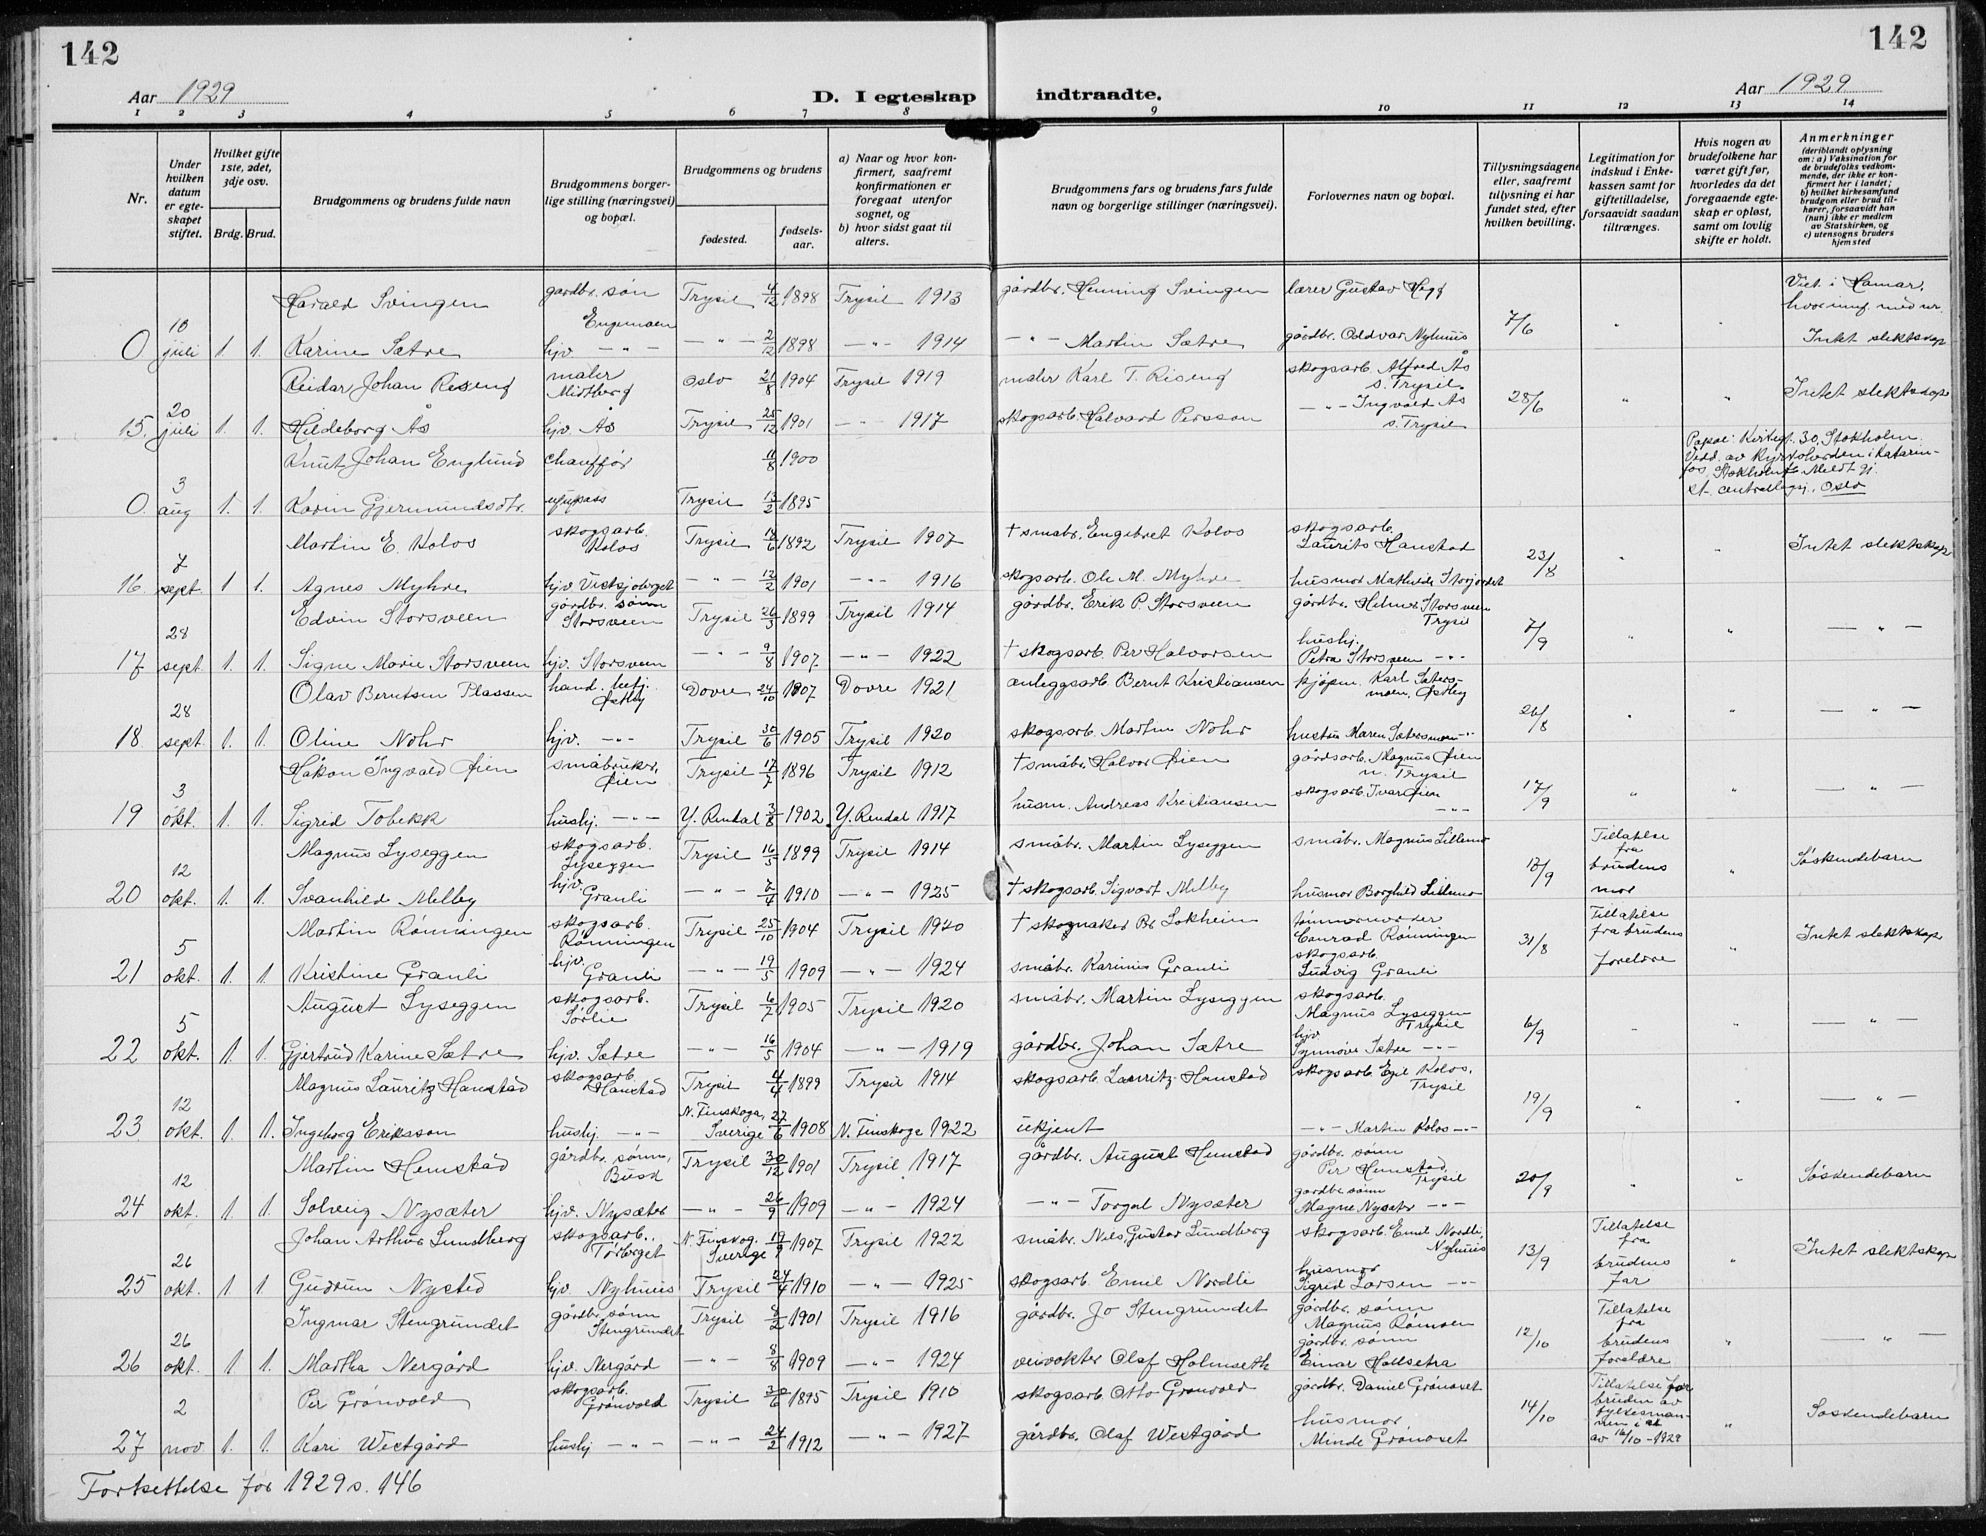 142
142
Aar 1929
D. I egteskap
indtraadte.
Aar 1929
1 2 3 4 5 6 7 8 9 10 11 12 13 14
Nr.
Under hvilken datum er egteskapet stiftet.
Hvilket gifte 1ste, 2det, 3dje osv.
Brdg. Brud.
Brudgommens og brudens fulde navn
Brudgommens borgerlige stilling (næringsvei) og bopæl.
Brudgommens og brudens
fødested.
fødselsaar.
a) Naar og hvor konfirmert, saafremt konfirmationen er foregaat utenfor sognet, og
b) hvor sidst gaat til alters.
Brudgommens fars og brudens fars fulde navn og borgerlige stillinger (næringsvei).
Forlovernes navn og bopæl.
Tillysningsdagene eller, saafremt tillysning ei har fundet sted, efter hvilken bevilling.
Legitimation for indskud i Enkekassen samt for giftetilladelse, forsaavidt saadan tiltrænges.
Hvis nogen av brudefolkene har været gift før, hvorledes da det foregaaende egteskap er opløst, samt om lovlig skifte er holdt.
Anmerkninger (deriblandt oplysning om: a) Vaksination for de brudefolks vedkommende, der ikke er konfirmert her i landet; b) hvilket kirkesamfund brudgom eller brud tilhører, forsaavidt han (hun) ikke er medlem av Statskirken, og c) utensogns bruders hjemsted
Harald Svingen gårdbr. søn Trysil 4/12 1898 Trysil 1913 gårdbr. Henning Svingen lærer Gustav Hegg Viet i Hamar,
Engemoen
0 10 juli 1. 1. Karine Sætre hjv. - " - - " - 2/12 1898 - " - 1914 - " - Martin Sætre gårdbr. Oddvar Nyhuus 7/6 " " Intet slektskap
Reidar Johan Riseng maler Midtberg Oslo 21/8 1904 Trysil 1919 maler Karl T. Riseng skogsarb. Alfred Ås s. Trysil.
15 20 juli 1. 1. Hildeborg Ås hjv. Ås Trysil 25/12 1901 - " - 1917 skogsarb. Halvard Persson - " - Ingvald Ås s. Trysil 28/6 " " Intet slektskap
Knut Johan Englund chauffør 11/8 1900
0. 3 aug 1. 1. Karin Gjermundsdtr. Trysil 13/2 1895 30, Stokholm.
Oslo
Martin E. Kolos skogsarb. Kolos Trysil 1892 Trysil 1907 † småbr. Engebret Kolos skogsarb. Laurits Hanstad
16 7 sept. 1 1. Agnes Myhre hjv - " - 12/2 1901 - " - 1916 skogsarb. Ole M. Myhre husmor Mathilde Storjordet 23/8 " " Intet slektskap
Edvin Storsveen gårdbr. sønn Storsveen Trysil 26/3 1899 Trysil 1914 gårdbr. Erik P. Storsveen gårdbr. Helmer Storsveen Trysil
17 28 sept 1. 1. Signe Marie Storsveen hjv. Storsveen - " - 9/8 1907 - " - 1922 † skogsarb. Per Halvorsen hushj. Petra Storsveen - " - 7/9 " " - " -
Olav Berntsen Plassen hand. betj. Østby Dovre 24/10 1907 Dovre 1921 anleggsarb. Bernt Kristiansen kjøpm. Karl Sætersmoen, Østby
18 28 sept. 1. 1. Oline Nohr hjv. - " - Trysil 30/6 1905 Trysil 1920 skogsarb. Martin Nohr hustru Maren Sætersmoen - " - 26/8 " " - " -
Håkon Ingvald Øien småbruker, Øien Trysil 17/7 1896 Trysil 1912 † småbr. Halvor Øien gårdsarb. Magnus Øien n. Trysil
19 3 okt. 1. 1. Sigrid Tobekk hushj. - " - Y. Rendal 3/8 1902 Y. Rendal 1917 husm. Andreas Kristiansen skogsarb. Ivar Øien - " - 17/9 " " - " -
Magnus Lyseggen skogsarb. Lyseggen Trysil 16/5 1899 Trysil 1914 småbr. Martin Lyseggen småbr. Magnus Lillemo
20 12 okt. 1. 1. Svanhild Melby hjv. Granli - " - 1910 - " - 1925 † skogsarb. Sigvart Melby husmor Borghild Lillemo 17/9 Tillatelse fra brudens mor " Søskendebarn
Martin Rønningen skogsarb. Rønningen Trysil 25/10 1904 Trysil 1920 † Lokheim Conrad Rønningen
21 5 okt. 1. 1. Kristine Granli hjv. Granli - " - 19/5 1909 - " - 1924 småbr. Karinus Granli skogsarb. Ludvig Granli 31/8 Tillatelse fra brudens foreldre " Intet slektskap
August Lyseggen skogsarb. Sørlie Trysil 6/7 1905 Trysil 1920 småbr. Martin Lyseggen skogsarb. Magnus Lyseggen Trysil
22 5 okt. 1. 1. Gjertrud Karine Sætre hjv. Sætre - " - 16/5 1904 - " - 1919 gårdbr. Johan Sætre hjv. Synnøve Sætre - " - 6/9 " " - " -
Magnus Lauritz Hanstad skogsarb. Hanstad Trysil 4/4 1899 Trysil 1914 skogsarb. Lauritz Hanstad skogsarb. Egil Kolos, Trysil
23 12 okt. 1. 1. Ingeborg Eriksson hushj. - " - N. Finskoga, Sverige 27/6 1908 N. Finskoga 1922 ukjent - " - Martin Kolos - " - 19/9 " " - " -
Martin Hemstad gårdbr. sønn, Trysil 30/12 1901 Trysil 1917 gårdbr. August Hemstad gårdbr. sønn Per Hemstad, Trysil
24 12 okt. 1. 1. Solveig Nysæter hjv. Nysæter - " - 26/9 1909 - " - 1924 - " - Torgal Nysæter gårdbr. sønn Magne Nysæter - " - 20/9 " " Søskendebarn
Johan Arthur Lundberg skogsarb. Tørberget N. Finskog. Sverige 1907 Trysil 1922 småbr. Nils Gustav Lundberg skogsarb. Emil Nordli, Nyhuus
25 26 okt. 1 1 Gudrun Nysted hjv. Nyhuus Trysil 24/4 1910 - " - 1925 skogsarb. Emil Nordli husmor Sigrid Larsen - " - 13/9 Tillatelse fra brudens far " Intet slektskap
Ingmar Stengrundet gårdbr. sønn Stengrundet Trysil 1901 Trysil 1916 gårdbr. Jo Stengrundet gårdbr. sønn Magnus Rømoen
26 26 okt. 1 1. Martha Nergård hjv. Nergård - " - 8/8 1909 - " - 1924 veivokter Olaf Holmseth gårdbr. sønn Einar Hallsetra 12/10 Tillatelse fra brudens foreldre " - " -
Per Grønvold skogsarb. Grønvold Trysil 30/6 1895 Trysil 1910 skogsarb. Otto Grønvold gårdbr. Daniel Grønoset
27 2 nov. 1. 1. Kari Westgård hushj - " - - " - 24/2 1912 - " - 1927 gårdbr. Olaf Westgård husmor Minda Grønoset 14/10 Tillatelse for bruden av fylkesmannen av 16/10-1929 " Søskendebarn
Fortsettelse for 1929 s. 146